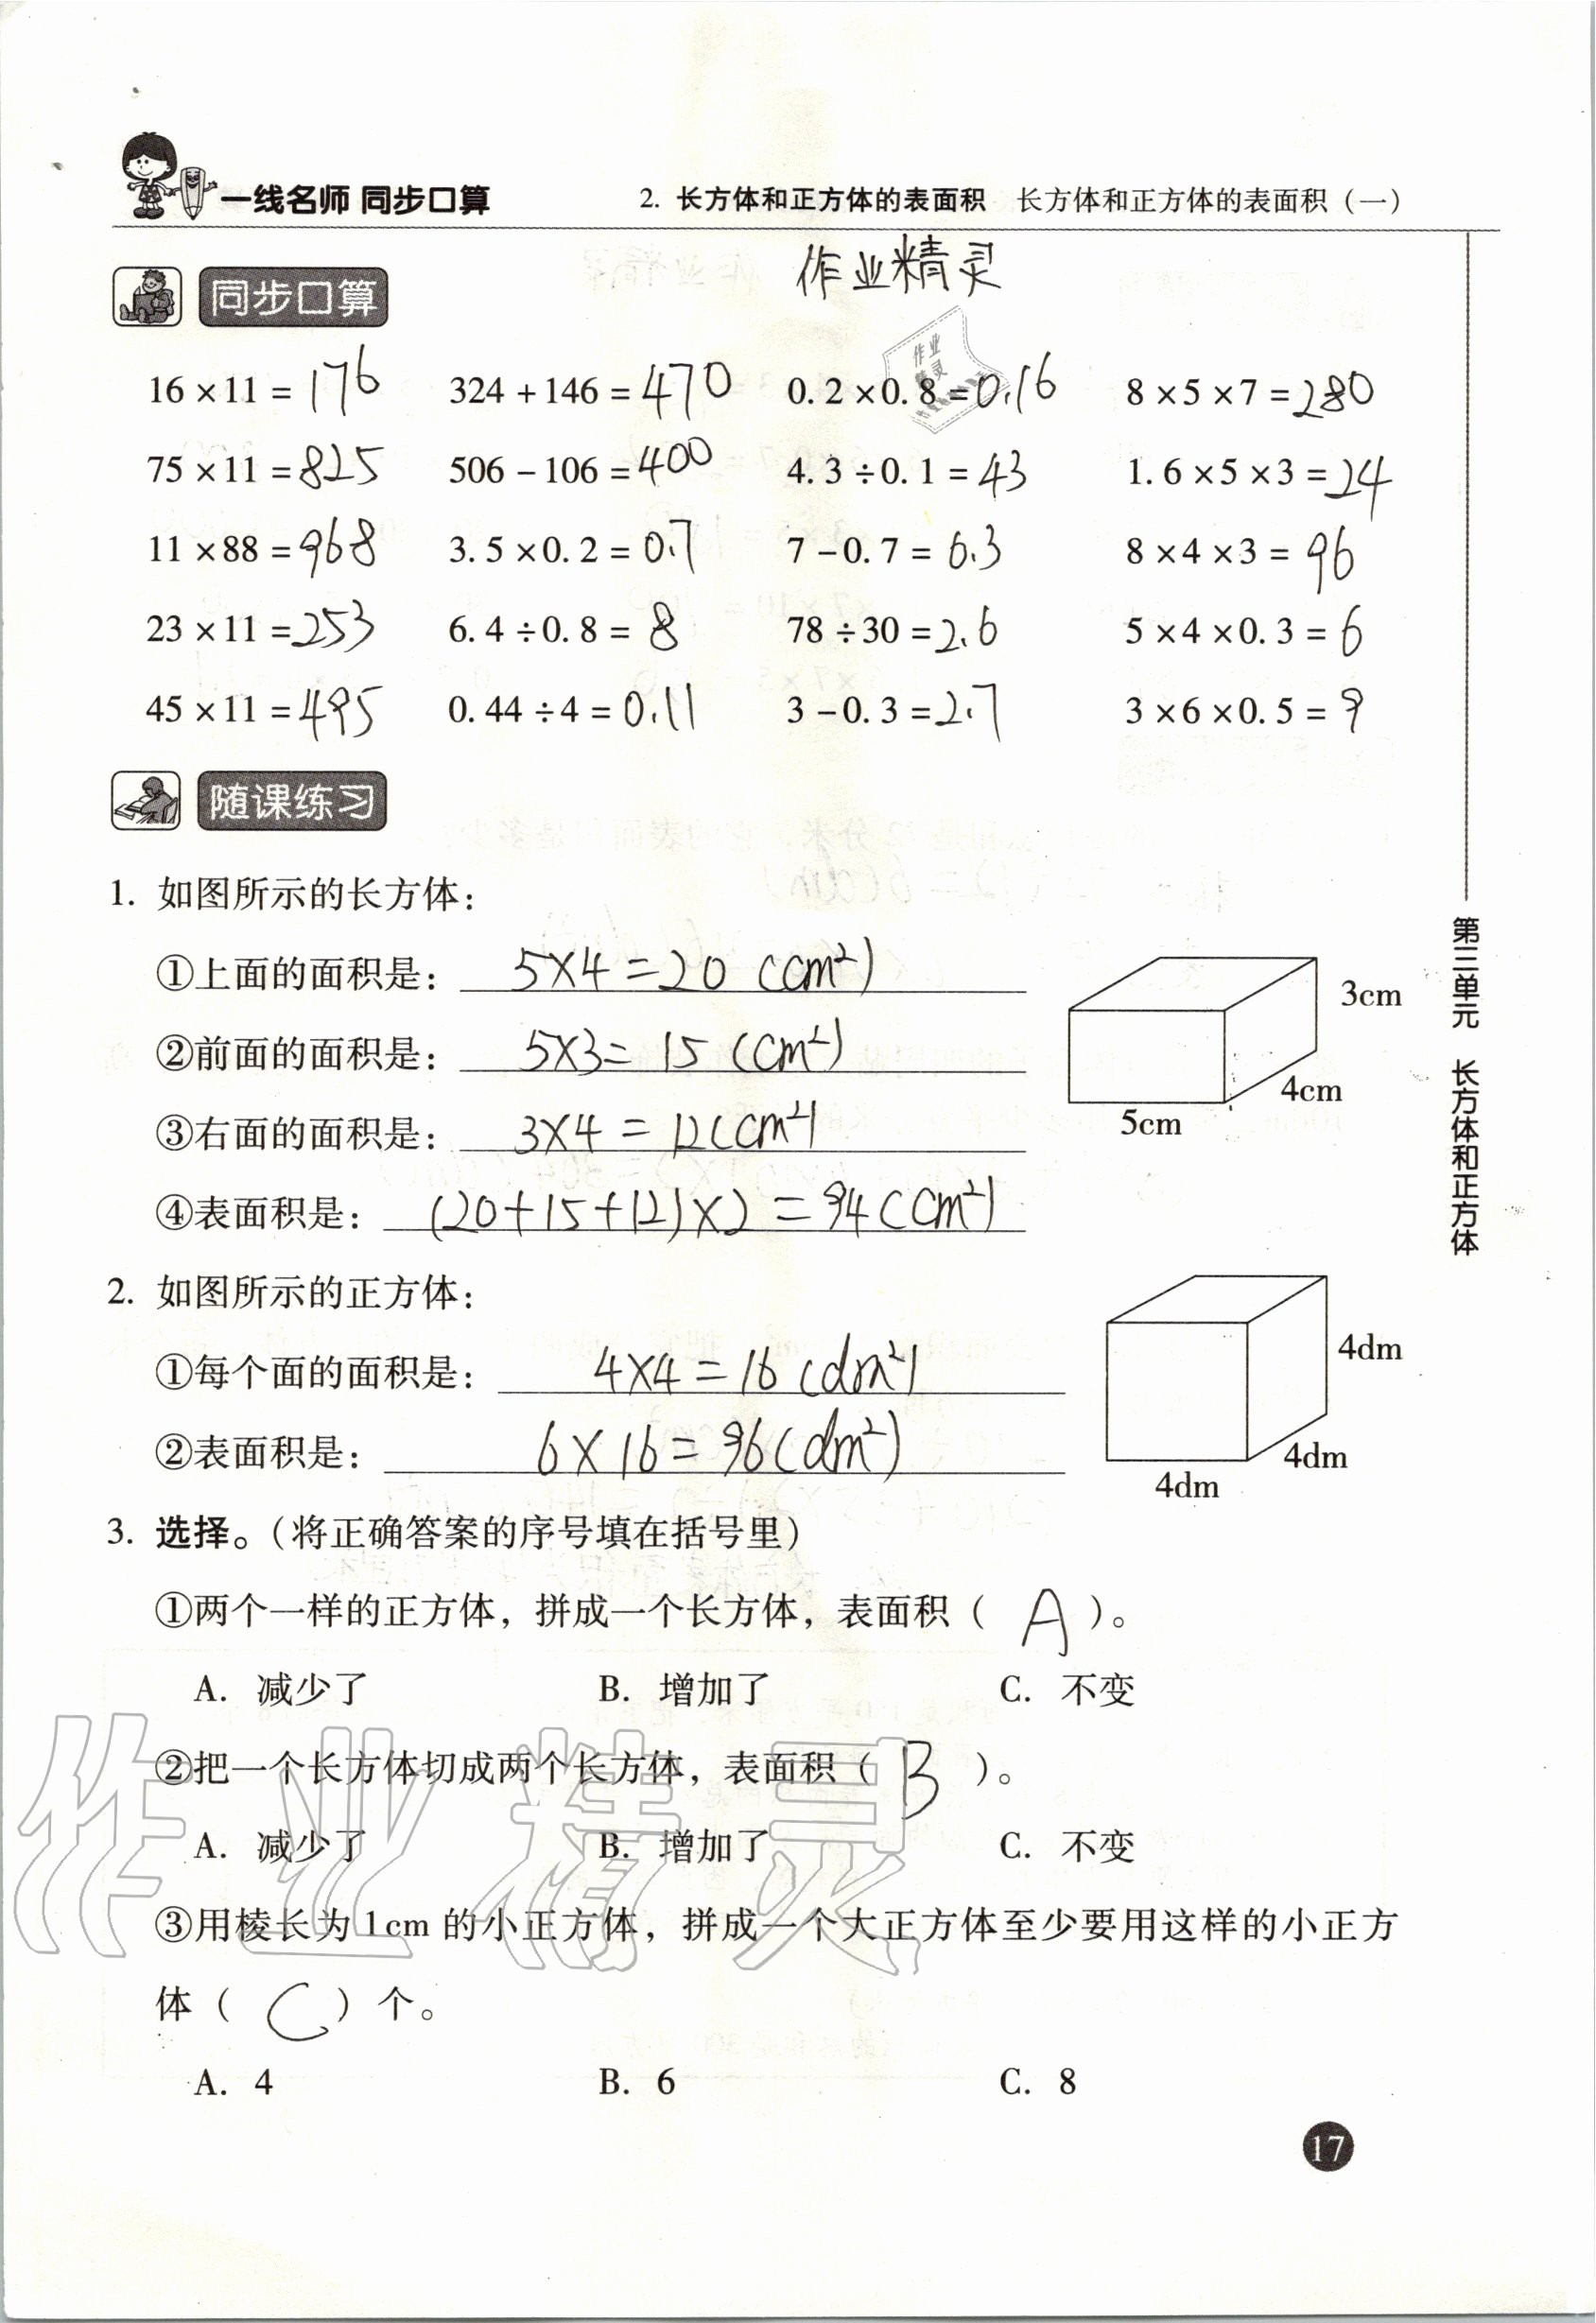 一线名师 同步口算
2. 长方体和正方体的表面积 长方体和正方体的表面积（一）
作业精灵
同步口算
作业精灵
16×11=176 324+146=470 0.2×0.8=0.16 8×5×7=280
75×11=825 506-106=400 4.3÷0.1=43 1.6×5×3=24
11×88=968 3.5×0.2=0.7 7-0.7=6.3 8×4×3=96
23×11=253 6.4÷0.8=8 78÷30=2.6 5×4×0.3=6
45×11=495 0.44÷4=0.11 3-0.3=2.7 3×6×0.5=9
随课练习
1. 如图所示的长方体：
①上面的面积是： 5×4=20 (cm²)
②前面的面积是： 5×3=15 (cm²)
③右面的面积是： 3×4=12(cm²)
④表面积是： (20+15+12)×2=94(cm²)
3cm
4cm
5cm
2. 如图所示的正方体：
①每个面的面积是： 4×4=16 (dm²)
②表面积是： 6×16=96(dm²)
4dm
4dm
4dm
3. 选择。（将正确答案的序号填在括号里）
①两个一样的正方体，拼成一个长方体，表面积（ A ）。
A. 减少了 B. 增加了 C. 不变
②把一个长方体切成两个长方体，表面积（ B ）。
A. 减少了 B. 增加了 C. 不变
③用棱长为1cm的小正方体，拼成一个大正方体至少要用这样的小正方
体（ C ）个。
A. 4 B. 6 C. 8
作业精灵
第三单元 长方体和正方体
17